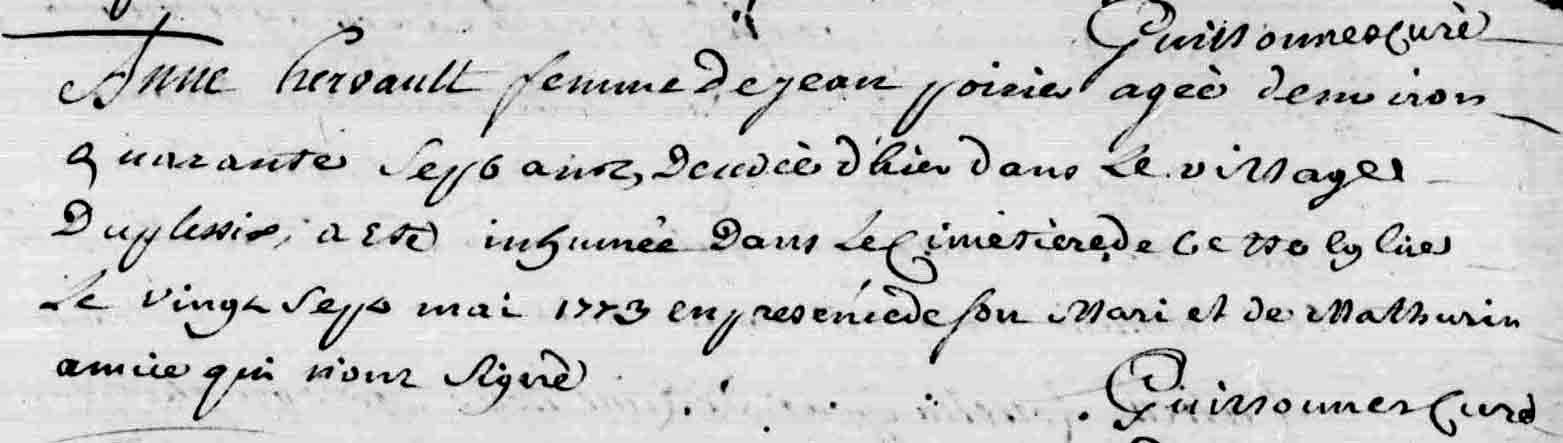 Guissonnes curé
Anne hervault femme de jean poirier ageé denviron
quarante sept ans, decedeé d'hier dans le village
Duplessix, a eté inhumée dans le Cimetiere de cette Eglise
le vingt sept mai 1773 en presence de son Mari et de Mathurin
amice qui n'ont signé
Guissonnes curé